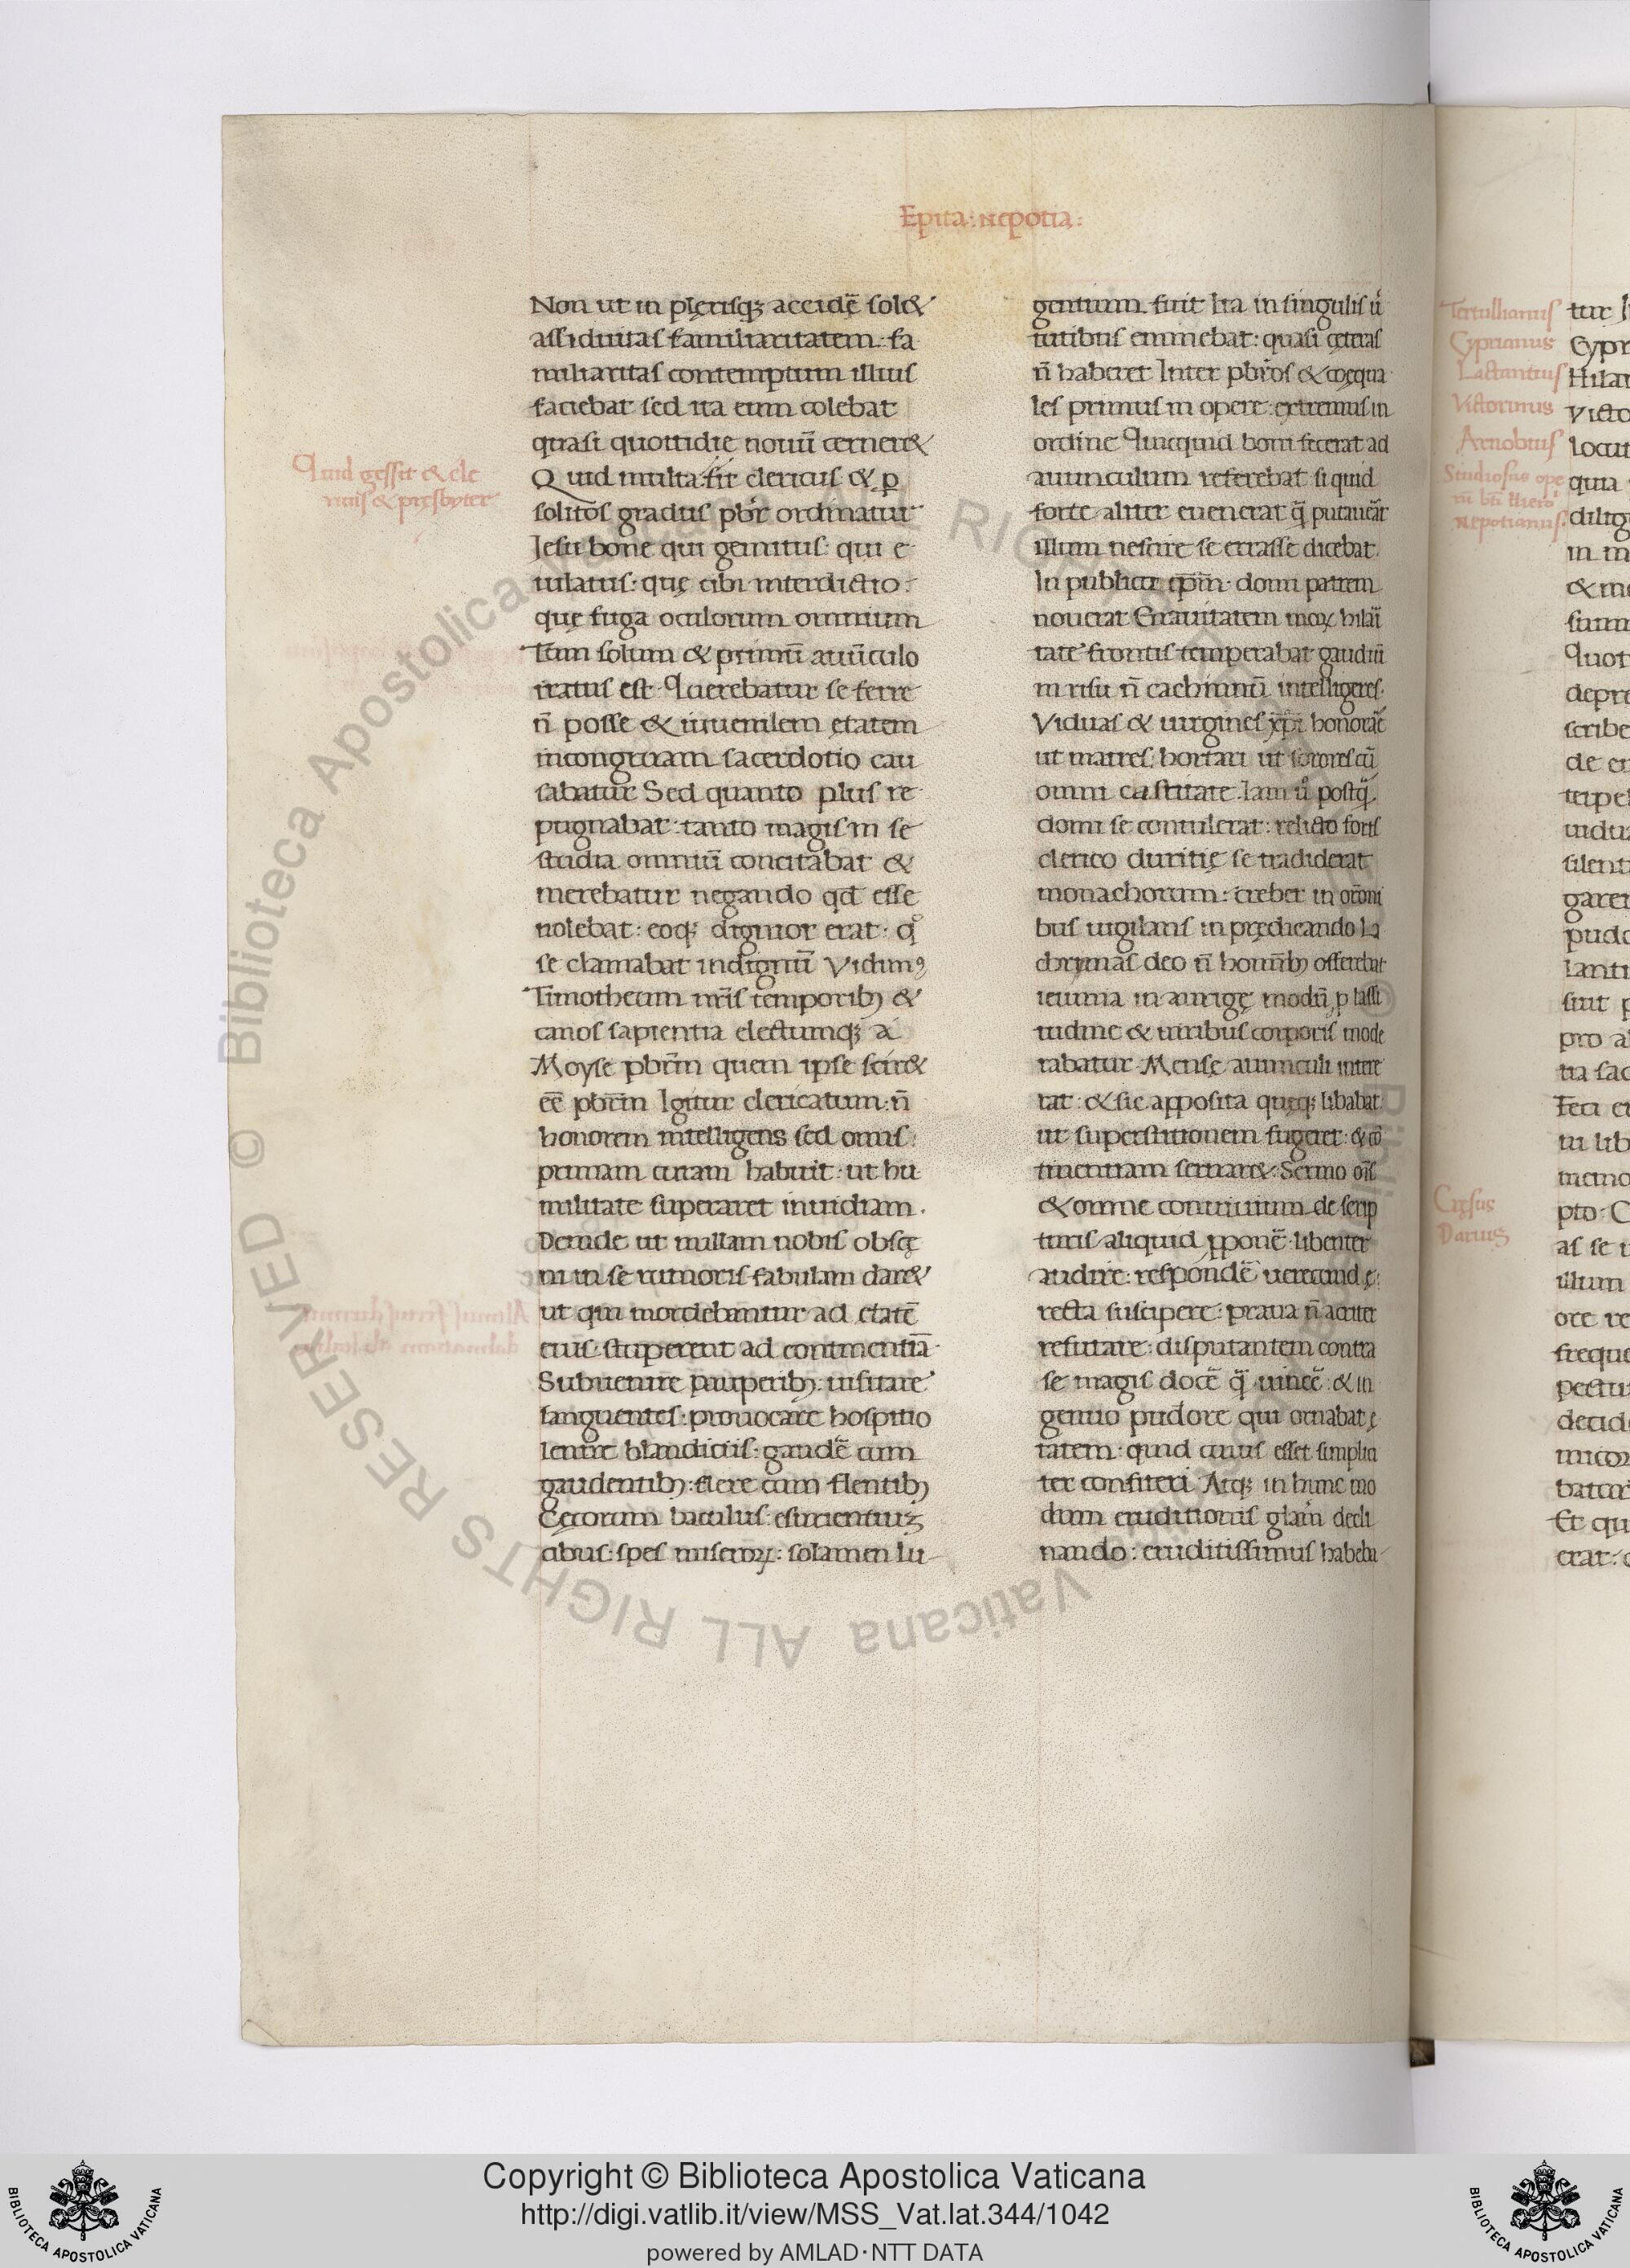 Epita: nepotia:
Non ut in plęrisq; accidē sol&
assiduitas familiaritatem: fa
miliaritas contemptum illius
faciebat sed ita eum colebat
quasi quottidie nouū cerner&
Quid gessit & cle
ricus & pręsbyter
Quid multa: fit clericus & p
solitos gradus pbr ordinatur
Iesu bone qui gemitus: qui e
iulatus: quę cibi interdictio:
quę fuga oculorum omnium
Tum solum & primū auūculo
iratus est Querebatur se ferre
n̄ posse & iuuenilem ętatem
incongruam sacerdotio cau
sabatur Sed quanto plus re
pugnabat: tanto magis in se
studia omniū concitabat &
merebatur negando qd esse
nolebat: eoq; dignior erat: qͦ
se clamabat indignū Vidimꝰ
Timotheum nr̄is temporib; &
canos sapientia electumq; a
Moyse pbr̄m quem ipse scir&
eē pbr̄m Igitur clericatum n̄
honorem intelligens sed onus:
primam curam habuit: ut hu
militate superaret inuidiam.
Deinde ut nullam nobis obscę
ni in se rumoris fabulam dar&
ut qui mordebantur ad ętatē
eius: stuperent ad continentiā
Subuenire pauperib;: uisitare
languentes: prouocare hospitio
lenire blandiciis: gaudē cum
gaudentib;: flere cum flentib;
Cęcorum baculus: esurientium
cibus: spes miseroꝝ: solamen lu
gentium fuit Ita in singulis uir
tutibus eminebat: quasi cęteras
n̄ haberet Inter pbr̄os & coęqua
les primus in opere: extremus in
ordine Quicquid boni fecerat ad
auunculum referebat si quid
forte aliter euenerat q̄ putauēat
illum nescire se errasse dicebat
In publico ep̄m: domi patrem
nouerat Grauitatem moꝝ hilari
tate frontis temperabat gaudiū
in risu n̄ cachinnū intelligeres:
Viduas & uirgines xp̄i honorāe
ut matres: hortari ut sorores cū
omni castitate. Iam ů postq̄
domi se contulerat: relicto foris
clerico duritię se tradiderat
monachorum: creber in or̄oni
bus uigilans in prędicando la
chrymas deo n̄ homīb; offerebat
ieiunia in aurigę modū p lassi
tudine & uiribus corporis mode
rabatur Mensę auunculi intere
rat: & sic apposita quęq; libabat
ut superstitionem fugeret: & cō
tinentiam seruar&: Sermo oīs
& omne conuiuium de scrip
turis aliquid pponē: libenter
audire: respondē uerecundę:
recta suscipere: praua n̄ acriter
refutare: disputantem contra
se magis docē q̄ uincē: & in
genuo pudore qui ornabat ę
tatem: quid cuius esset simplici
ter confiteri Atq; in hunc mo
dum eruditionis glām decli
nando: eruditissimus habeba
Tertullianus
Cyprianus
Lactantius
Victorinus
Arnobius
Nepotianus.
Cręsus
Darius
Copyright © Biblioteca Apostolica Vaticana
http://digi.vatlib.it/view/MSS_Vat.lat.344/1042
powered by AMLAD·NTT DATA
BIBLIOTECA APOSTOLICA VATICANA
BIBLIOTECA APOSTOLICA VATICANA